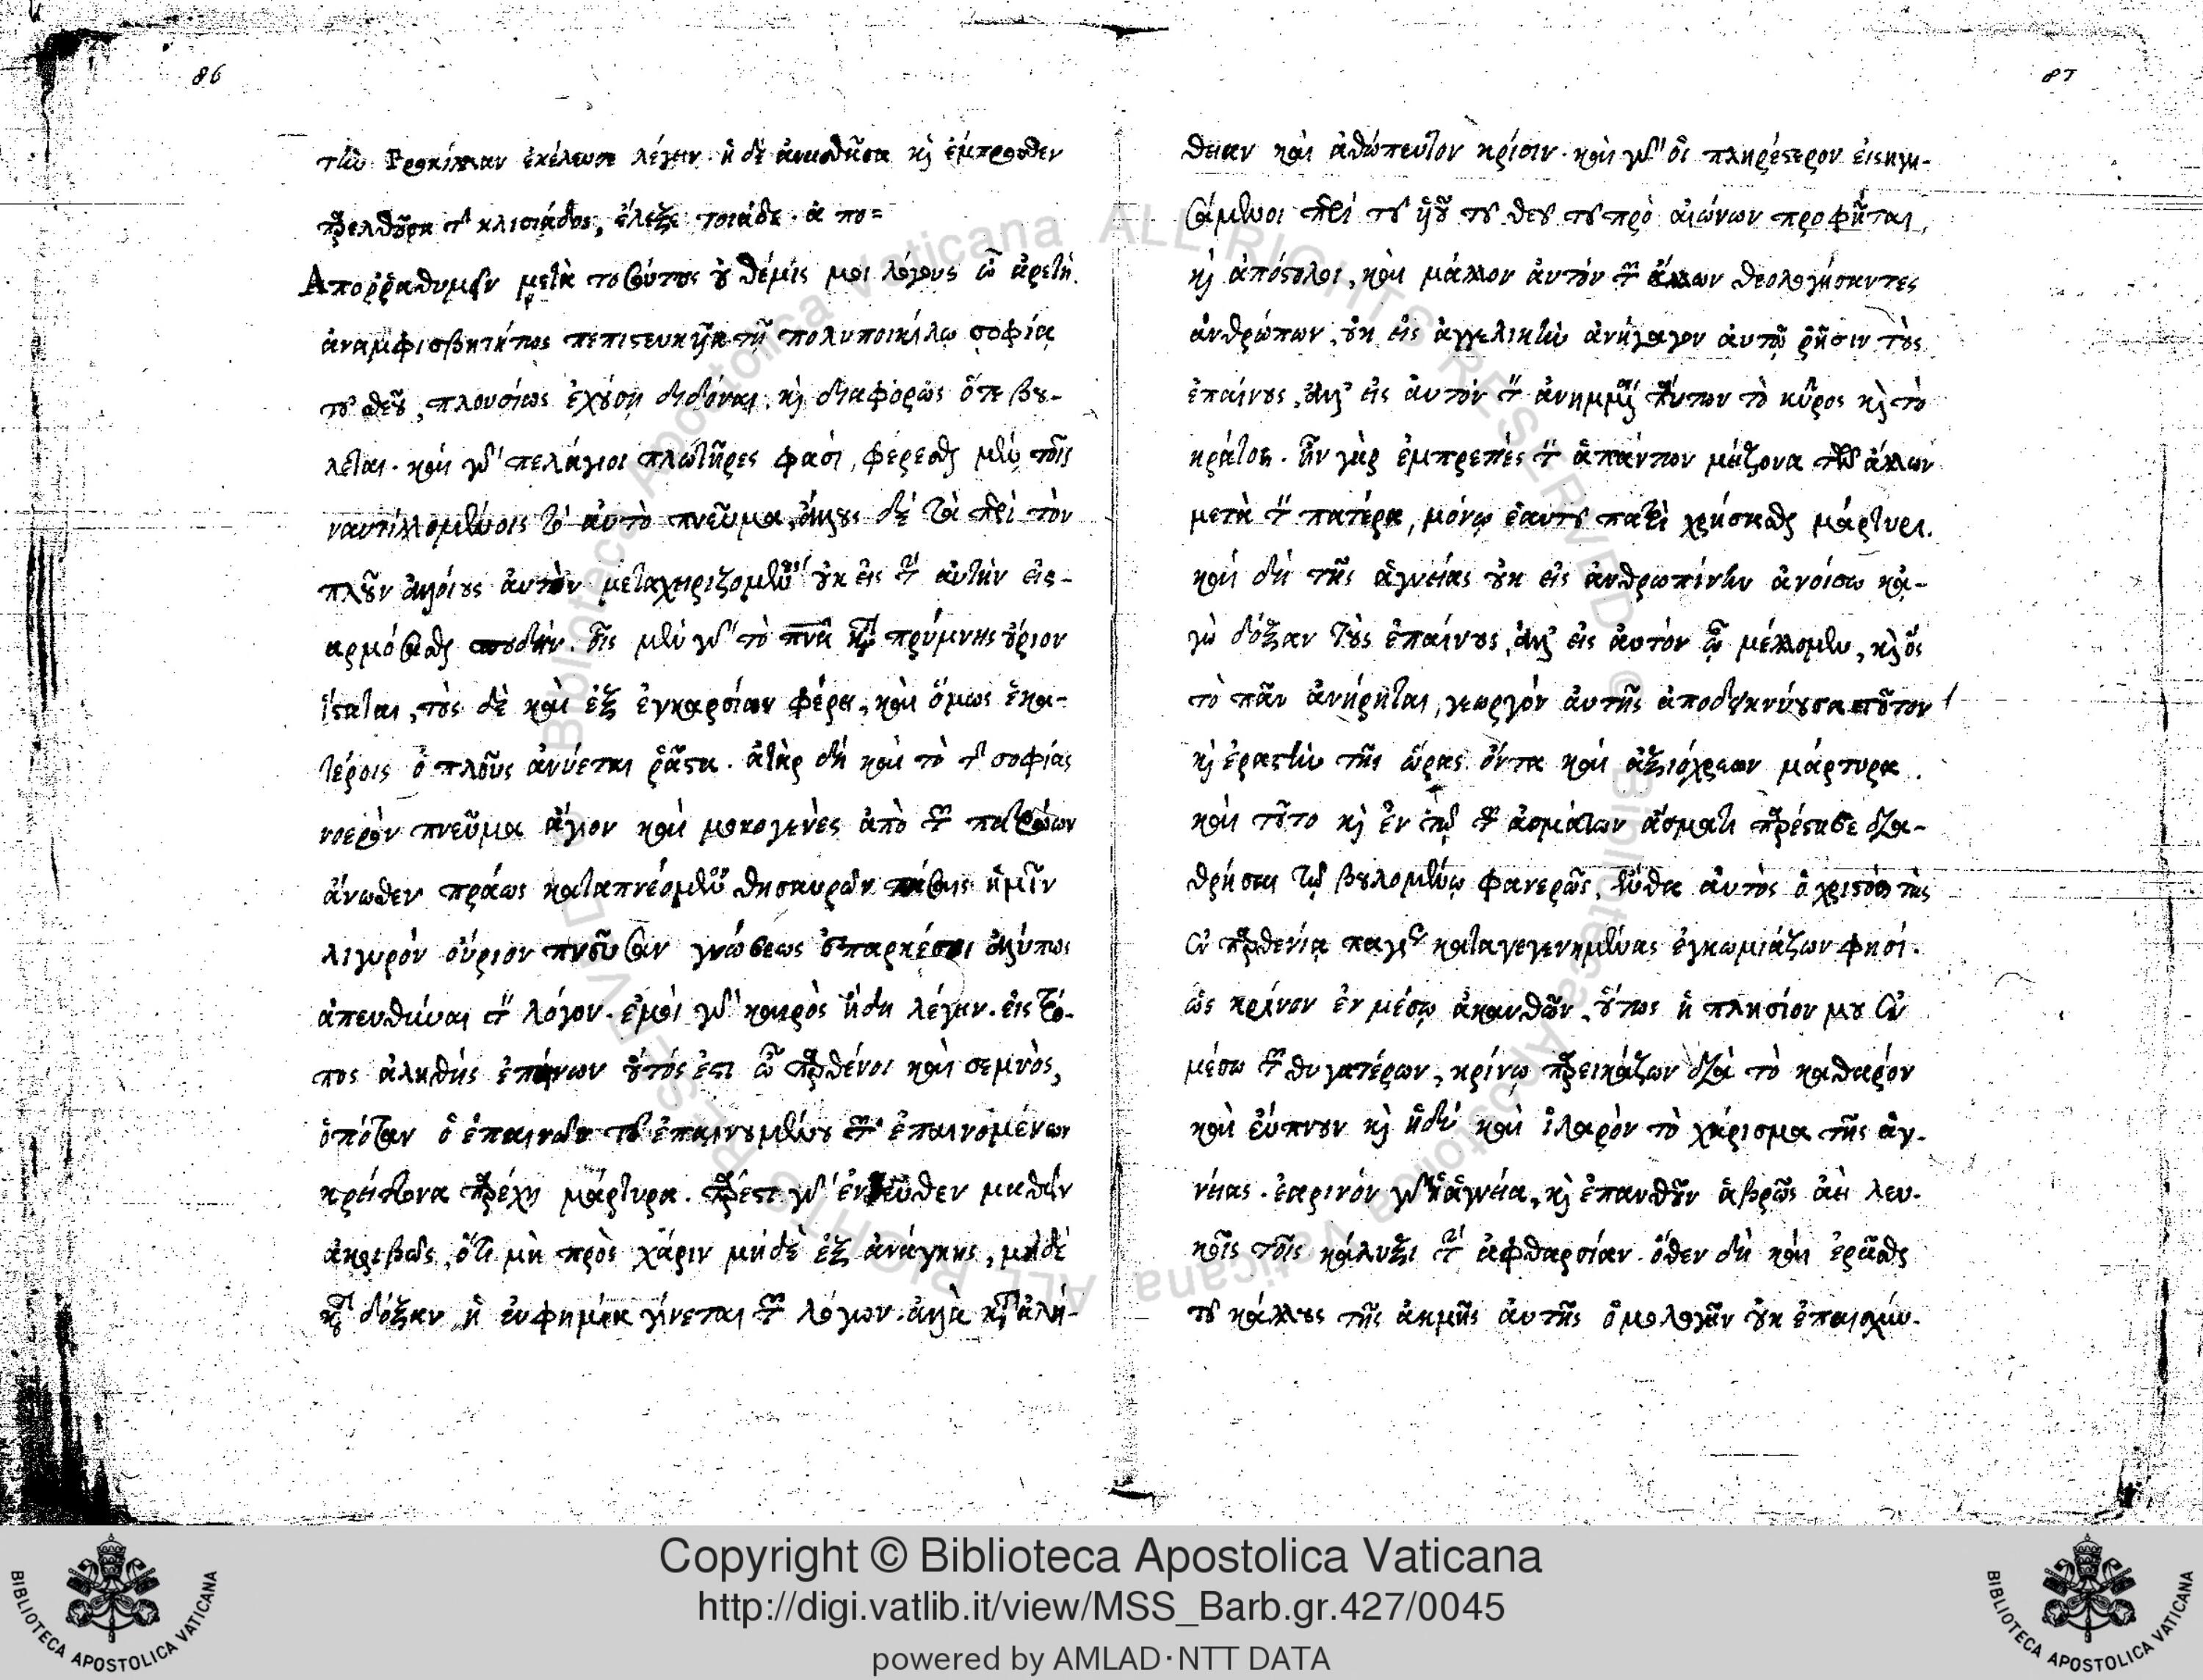 86
τὴν Προκίλλαν ἐκέλευσε λέγειν· ἡ δὲ ἀναστᾶσα καὶ ἔμπροσθεν
παρελθοῦσα τῆς κλισιάδος, ἔλεξε τοιάδε·
Ἀπορραθυμεῖν μετὰ τοσούτους οὐ θέμις μοι λόγους ὦ ἀρετή.
ἀναμφισβητήτως πεπιστευκυῖα τῇ πολυποικίλῳ σοφίᾳ
τοῦ θεοῦ, πλουσίως ἐχούσῃ διδόναι, καὶ διαφόρως ὅτε βού-
λεται. καὶ γὰρ πελάγιοι πλωτῆρες φασὶ, φέρεσθαι μὲν τοῖς
ναυτιλλομένοις τὸ αὐτὸ πνεῦμα, ἄλλους δὲ τὰ περὶ τὸν
πλοῦν ἀλλοίως αὐτὸν μεταχειριζομένους οὐκ εἰς τὴν αὐτὴν εἰσ-
αρμόσασθαι σπουδήν. τοῖς μὲν γὰρ τὸ πνεῦμα κατὰ πρύμνης οὔριον
ἵσταται, τοῖς δὲ καὶ ἐξ ἐγκαρσίων φέρει, καὶ ὅμως ἑκα-
τέροις ὁ πλοῦς ἀνύεται ῥᾷστα. ἀτὰρ δὴ καὶ τὸ τῆς σοφίας
νοερὸν πνεῦμα ἅγιον καὶ μονογενὲς ἀπὸ τῶν πατρῴων
ἄνωθεν πράως καταπνεόμενον θησαυρῶν πάσαις ἡμῖν
λιγυρὸν οὔριον πνεῦσαν γνώσεως ἐπαρκέσει ἀλύπως
ἀπευθύναι τὸν λόγον. ἐμοὶ γὰρ καιρὸς ἤδη λέγειν. εἷς τρό-
πος ἀληθὴς ἐπαίνων οὗτός ἐστι ὦ παρθένοι καὶ σεμνὸς,
ὁπόταν ὁ ἐπαινῶν τοῦ ἐπαινουμένου τῶν ἐπαινομένων
κρείττονα παρέχῃ μάρτυρα. πάρεστι γὰρ ἐντεῦθεν μαθεῖν
ἀκριβῶς, ὅτι μὴ πρὸς χάριν μηδὲ ἐξ ἀνάγκης, μηδὲ
κατὰ δόξαν ἡ εὐφημία γίνεται τῶν λόγων. ἀλλὰ κατὰ ἀλή-
87
θειαν καὶ ἀθώπευτον κρίσιν. καὶ γὰρ οἱ πληρέστερον εἰσηγη-
σάμενοι περὶ τοῦ υἱοῦ τοῦ θεοῦ τοῦ πρὸ αἰώνων προφῆται,
καὶ ἀπόστολοι, καὶ μᾶλλον αὐτὸν τῶν ἄλλων θεολογήσαντες
ἀνθρώπων, οὐκ εἰς ἀγγελικὴν ἀνήγαγον αὐτοῦ ῥῆσιν τοὺς
ἐπαίνους, ἀλλ' εἰς αὐτὸν τὸν ἀνημμένον πάντων τὸ κῦρος καὶ τὸ
κράτος. ἦν γὰρ ἐμπρεπὲς τὸν ἁπάντων μείζονα τῶν ἄλλων
μετὰ τὸν πατέρα, μόνῳ ἑαυτοῦ πατρὶ χρήσασθαι μάρτυρι.
καὶ δὴ τῆς ἁγνείας οὐκ εἰς ἀνθρωπίνην ἀνοίσω κἀ-
γὼ δόξαν τοὺς ἐπαίνους, ἀλλ' εἰς αὐτὸν ᾧ μέλλομεν, καὶ ὃς
τὸ πᾶν ἀνῄρηται, γεωργὸν αὐτῆς ἀποδεικνύουσα τοῦτον
καὶ ἐραστὴν τῆς ὥρας ὄντα καὶ ἀξιόχρεων μάρτυρα.
καὶ τοῦτο καὶ ἐν τῷ τῶν ᾀσμάτων ᾄσματι πάρεστι δια-
θρῆσαι τῷ βουλομένῳ φανερῶς, ἔνθα αὐτὸς ὁ χριστὸς τὰς
ἐν παρθενίᾳ παγίως καταγεγενημένας ἐγκωμιάζων φησί.
ὡς κρίνον ἐν μέσῳ ἀκανθῶν, οὕτως ἡ πλησίον μου ἐν
μέσῳ τῶν θυγατέρων, κρίνῳ παρεικάζων διὰ τὸ καθαρόν
καὶ εὔπνουν καὶ ἡδὺ καὶ ἱλαρὸν τὸ χάρισμα τῆς ἁγ-
νείας. ἐαρινὸν γὰρ ἡ ἁγνεία, καὶ ἐπανθοῦν ἁβρῶς ἀεὶ λευ-
κοῖς τοῖς κάλυξι τὴν ἀφθαρσίαν. ὅθεν δὴ καὶ ἐρᾶσθαι
τοῦ κάλλους τῆς ἀκμῆς αὐτῆς ὁμολογῶν οὐκ ἐπαισχύν-
Copyright © Biblioteca Apostolica Vaticana
http://digi.vatlib.it/view/MSS_Barb.gr.427/0045
powered by AMLAD·NTT DATA
BIBLIOTECA APOSTOLICA VATICANA
BIBLIOTECA APOSTOLICA VATICANA